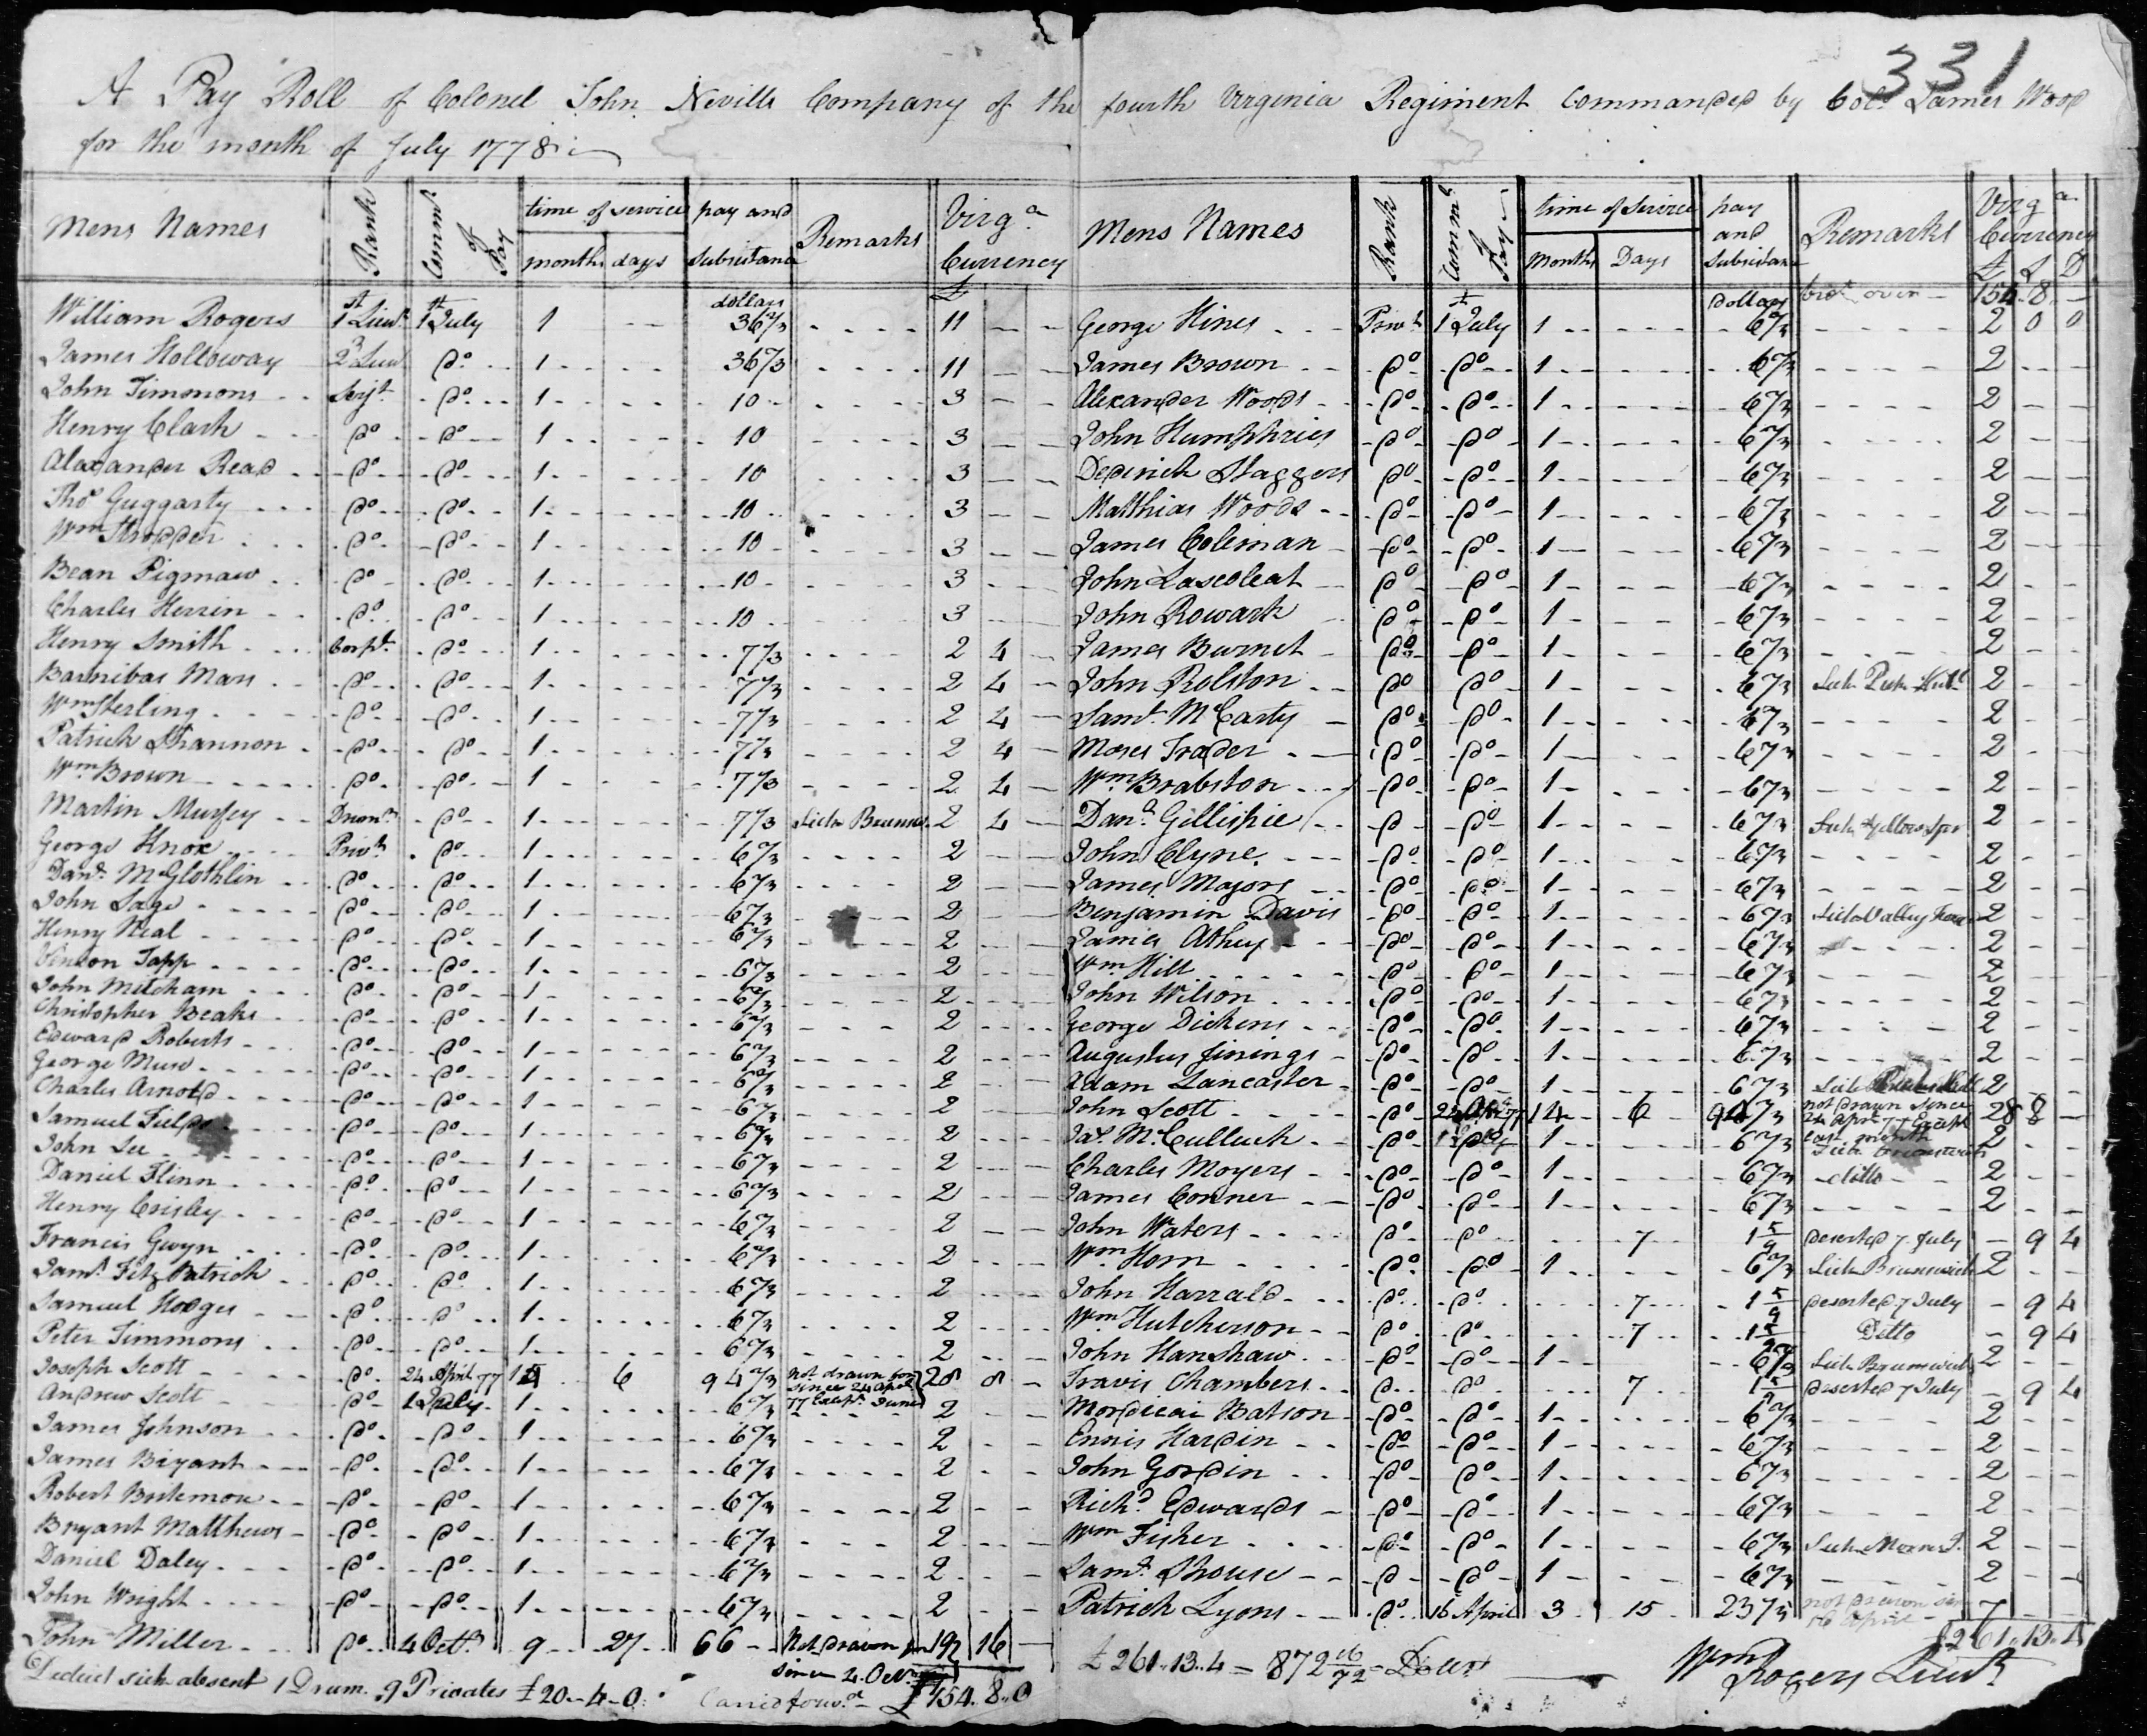 331
A Pay Roll of Colonel John Neville Company of the fourth Virginia Regiment Commanded by Col. James Wood
for the month of July 1778
Mens Names Rank Commt of Pay time of service months days pay and Subsistance Remarks Virga Currency
dollars £
William Rogers 1st Lieut 1st July 1 36 2/3 11
James Holloway 2d Lieut Do 1 36 2/3 11
John Timmons Serjt Do 1 10 3
Henry Clark Do Do 1 10 3
Alaxander Read Do Do 1 10 3
Thos Guggarty Do Do 1 10 3
Wm Do Do 1 10 3
Bean Pigmaw Do Do 1 10 3
Charles Herrin Do Do 1 10 3
Henry Smith Corpl Do 1 7 1/3 2 4
Barnibas Mars Do Do 1 7 1/3 2 4
Wm Sterling Do Do 1 7 1/3 2 4
Patrick Shannon Do Do 1 7 1/3 2 4
Wm Brown Do Do 1 7 1/3 2 4
Martin Murfey Drumr Do 1 7 1/3 Sick Brunsk 2 4
George Knox Privt Do 1 6 2/3 2
Danl McGlothlin Do Do 1 6 2/3 2
John Sage Do Do 1 6 2/3 2
Henry Neal Do Do 1 6 2/3 2
Vinson Tapp Do Do 1 6 2/3 2
John Mitcham Do Do 1 6 2/3 2
Christopher Beaks Do Do 1 6 2/3 2
Edward Roberts Do Do 1 6 2/3 2
George Muse Do Do 1 6 2/3 2
Charles Arnold Do Do 1 6 2/3 2
Samuel Fields Do Do 1 6 2/3 2
John Lee Do Do 1 6 2/3 2
Daniel Flinn Do Do 1 6 2/3 2
Henry Crisley Do Do 1 6 2/3 2
Francis Gwyn Do Do 1 6 2/3 2
Jams FitzPatrick Do Do 1 6 2/3 2
Samuel Hodges Do Do 1 6 2/3 2
Peter Timmons Do Do 1 6 2/3 2
Joseph Scott Do 24 April 77 14 6 94 2/3 Not drawn for since 24 April 77 Exept June 28 8
Andrew Scott Do 1 July 1 6 2/3 2
James Johnson Do Do 1 6 2/3 2
James Bryant Do Do 1 6 2/3 2
Robert Do Do 1 6 2/3 2
Bryant Matthews Do Do 1 6 2/3 2
Daniel Daley Do Do 1 6 2/3 2
John Wright Do Do 1 6 2/3 2
John Miller Do 4 Octr 9 27 66 Not drawn for since 4 Octr 19 16
Deduct sick absent 1 Drum. 9 Privates £20-4-0 Carried forwd £154.8.0
Mens Names Rank Commt Pay time of Service Months Days pay and Subsistance Remarks Virga Currency
£ S D
Dollars brot over 154 8
George Hines Privt 1st July 1 6 2/3 2 0 0
James Brown Do Do 1 6 2/3 2
Alexander Woods Do Do 1 6 2/3 2
John Humphries Do Do 1 6 2/3 2
Dedrick Staggers Do Do 1 6 2/3 2
Matthias Woods Do Do 1 6 2/3 2
James Coleman Do Do 1 6 2/3 2
John Lascoleat Do Do 1 6 2/3 2
John Rowark Do Do 1 6 2/3 2
James Burnet Do Do 1 6 2/3 2
John Rolston Do Do 1 6 2/3 Sick 2
Saml McCarty Do Do 1 6 2/3 2
Moses Trader Do Do 1 6 2/3 2
Wm Brabston Do Do 1 6 2/3 2
Danl Gillispie Do Do 1 6 2/3 Sick Yellow Spr 2
John Clyne Do Do 1 6 2/3 2
James Majors Do Do 1 6 2/3 2
Benjamin Davis Do Do 1 6 2/3 Sick Valley Forge 2
James Athey Do Do 1 6 2/3 2
Wm Hill Do Do 1 6 2/3 2
John Wilson Do Do 1 6 2/3 2
George Dickens Do Do 1 6 2/3 2
Augustus Jinings Do Do 1 6 2/3 2
Adam Lancaster Do Do 1 6 2/3 Sick 2
John Scott Do 24 April 77 14 6 94 2/3 not drawn since 24 April 77 Except last month 28 8
Jas McCulluck Do 1 July 1 6 2/3 2
Charles Moyers Do Do 1 6 2/3 ditto 2
James Conner Do Do 1 6 2/3 2
John Waters Do Do 7 1 5/9 Deserted 7 July 9 4
Wm Horn Do Do 1 6 2/3 Sick Brunswick 2
John Harrald Do Do 7 1 5/9 Deserted 7 July 9 4
Wm Hutcherson Do Do 7 1 5/9 Ditto 9 4
John Hanshaw Do Do 1 6 2/3 Sick Brunswick 2
Travis Chambers Do Do 7 1 5/9 Deserted 7 July 9 4
Mordicai Batson Do Do 1 6 2/3 2
Ennis Hardin Do Do 1 6 2/3 2
John Gordin Do Do 1 6 2/3 2
Richd Edwards Do Do 1 6 2/3 2
Wm Fisher Do Do 1 6 2/3 Sick 2
Saml Shouse Do Do 1 6 2/3 2
Patrick Lyons Do 16 April 3 15 23 1/3 not drawn since 16 April 7
£261.13.4
£261..13..4 = 872 16/72 Dollrs
Wm Rogers Lieut